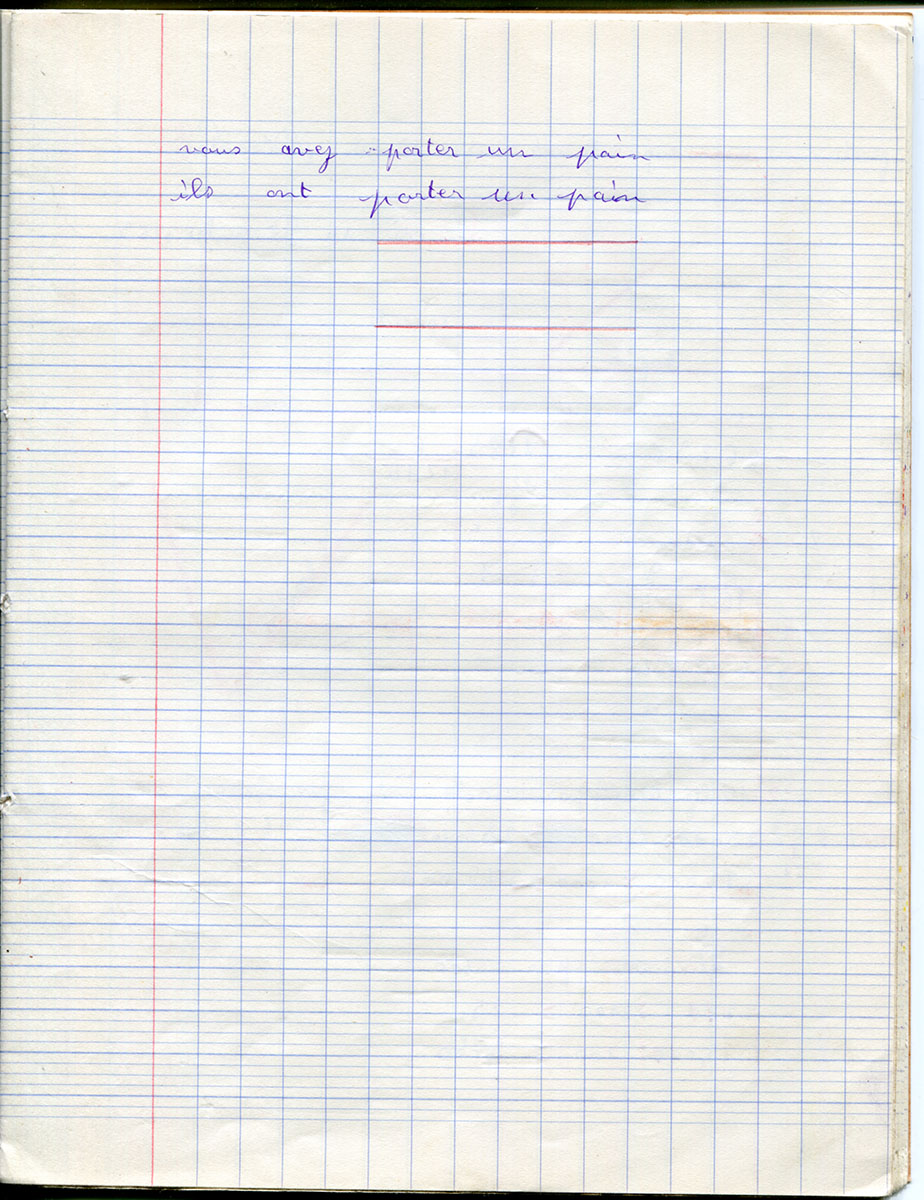 vous avez porter un pain
ils ont porter un pain